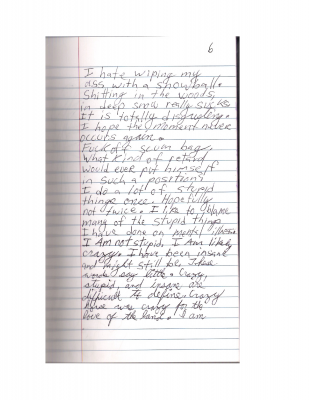 6
I hate wiping my
ass with a snowball.
Shitting in the woods,
in deep snow really sucks.
It is totally disgusting.
I hope the moment never
occurs again.
Fuck off scum bag.
What kind of retard
would ever put himself
in such a position?
I do a lot of stupid
things once. Hopefully
not twice. I like to blame
many of the stupid things
I have done on mental illness.
I Am not stupid. I Am likely
crazy. I have been insane
and might still be. These
words say little. Crazy,
stupid, and insane are
difficult to define. Crazy
was crazy for the
love of the land. I am